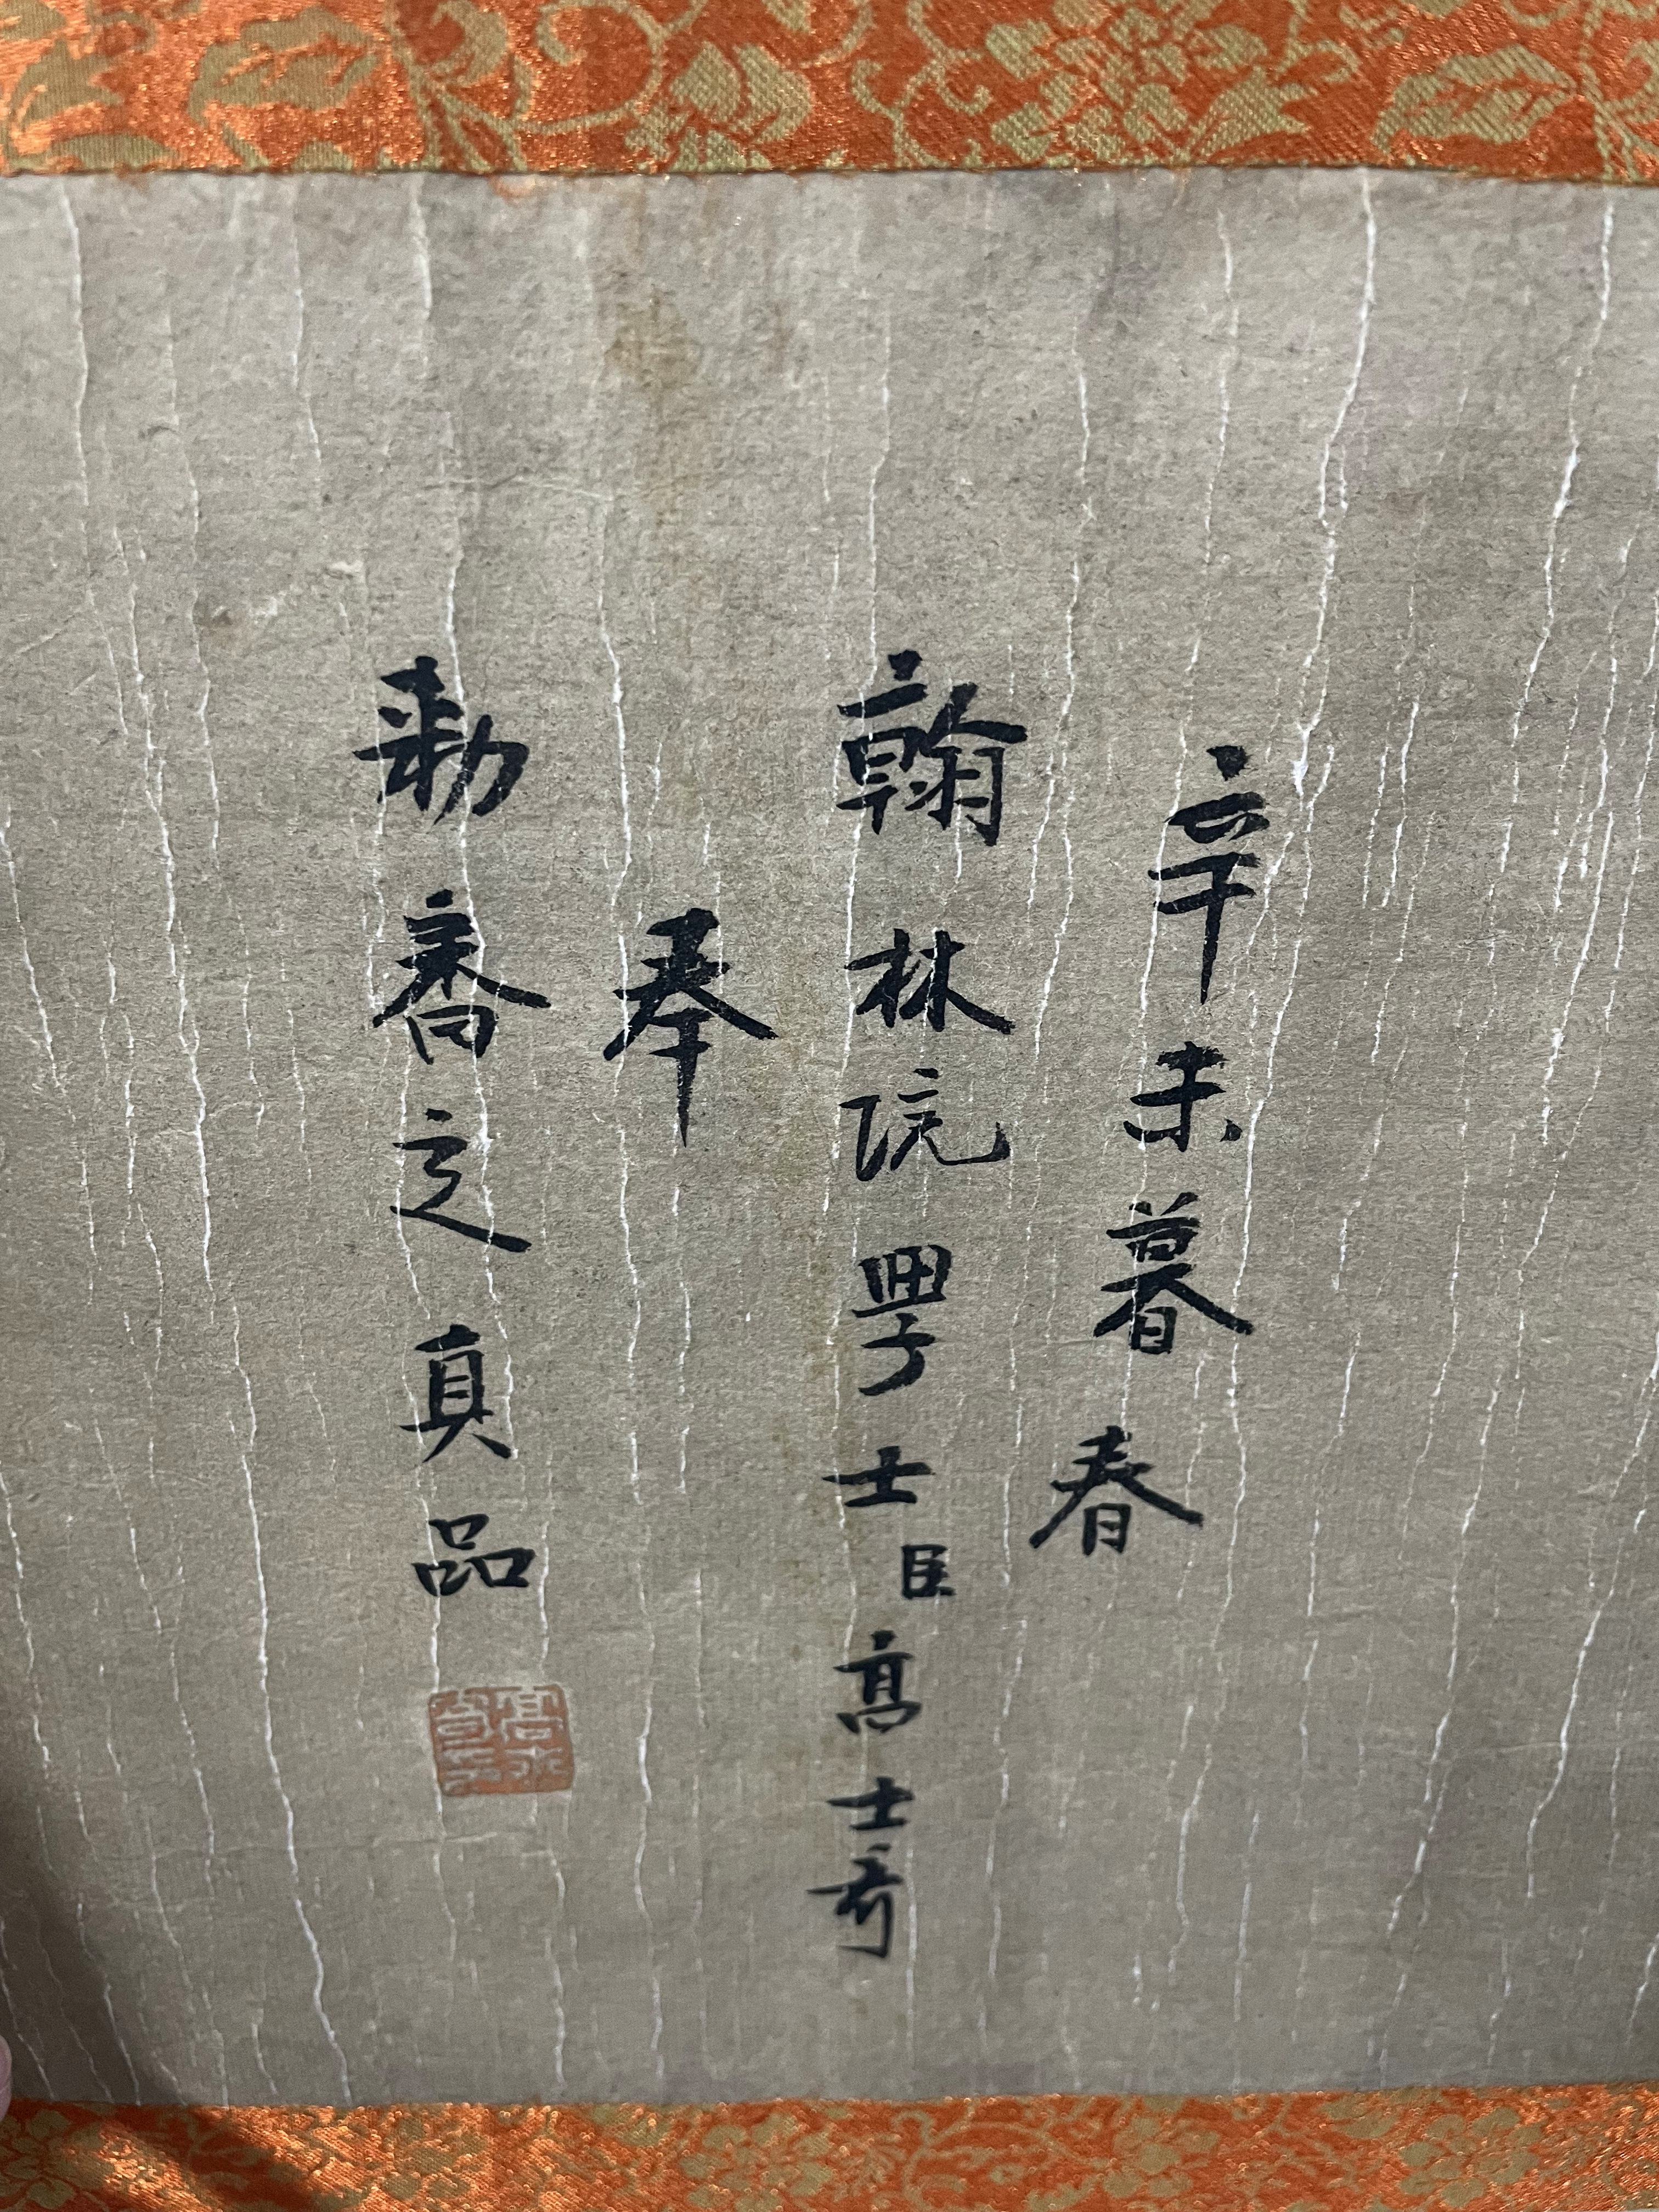 辛未暮春
翰林院學士臣高士奇
奉
勅喬之真品